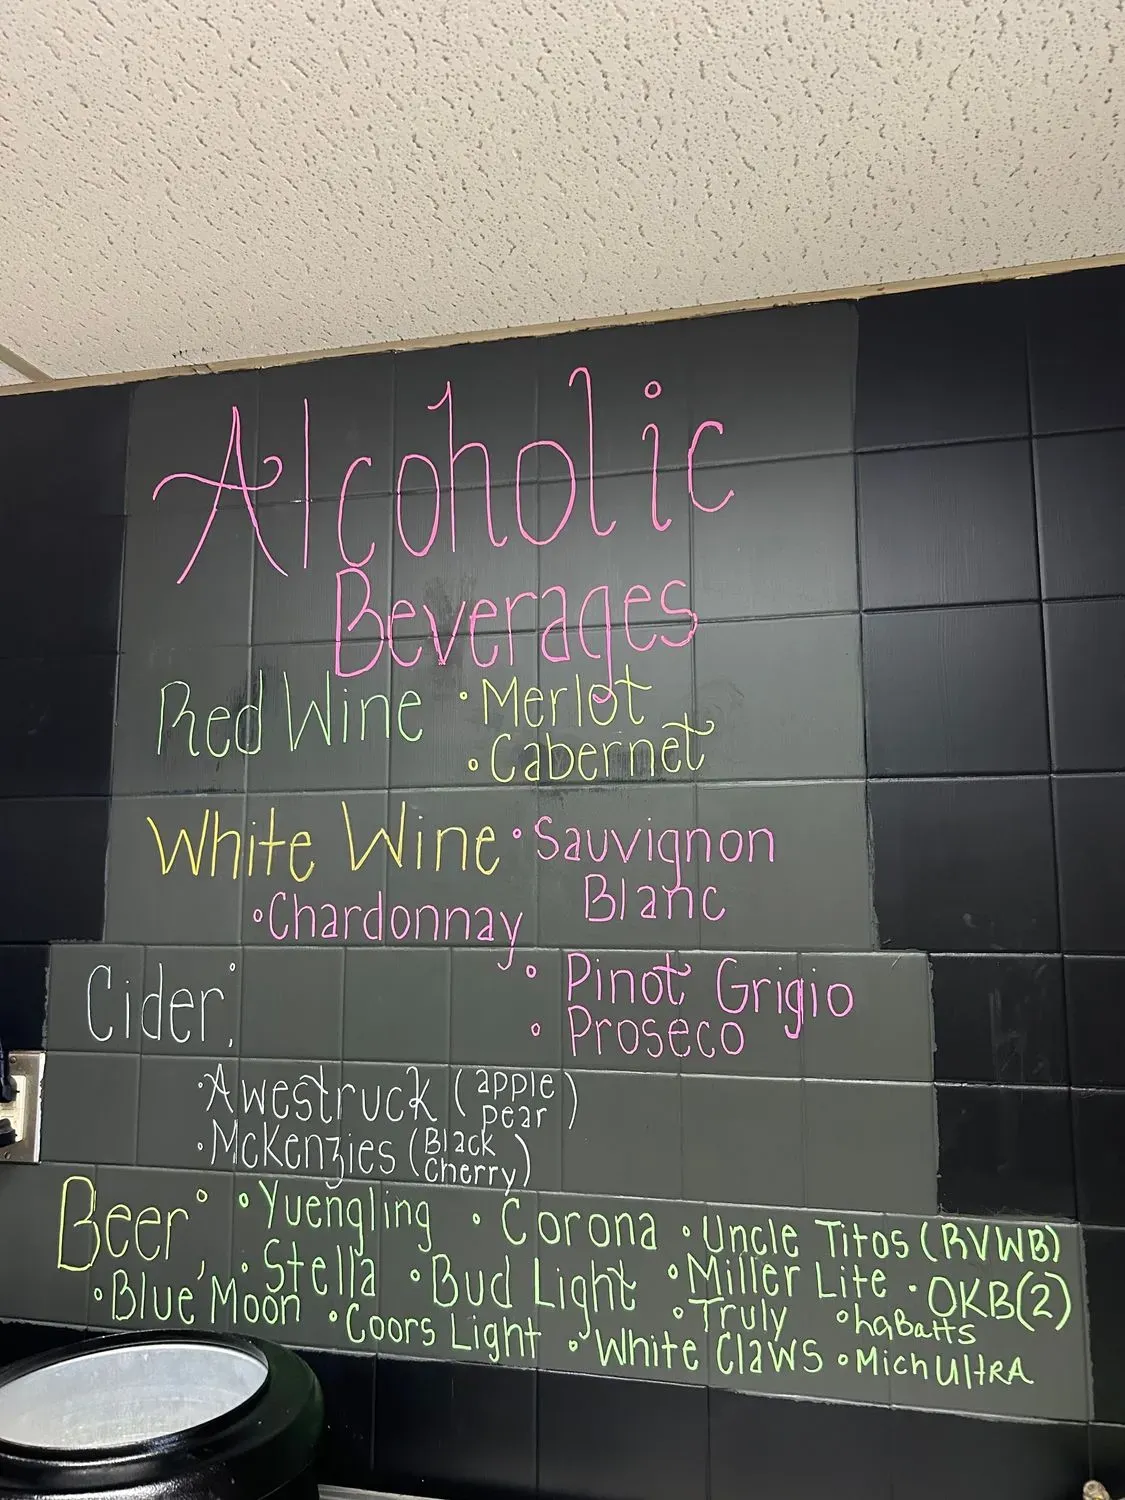 Alcoholic
Beverages
Red Wine • Merlot
• Cabernet
White Wine • Sauvignon
Blanc
• Chardonnay
• Pinot Grigio
• Proseco
Cider:
• Awestruck (apple
pear)
• Mckenzies (Black
Cherry)
Beer: • Yuengling • Corona • Uncle Titos (RVWB)
• Stella • Bud Light • Miller Lite • OKB(2)
• Blue Moon • Coors Light • Truly • haBatts
• White Claws • Mich UltRA